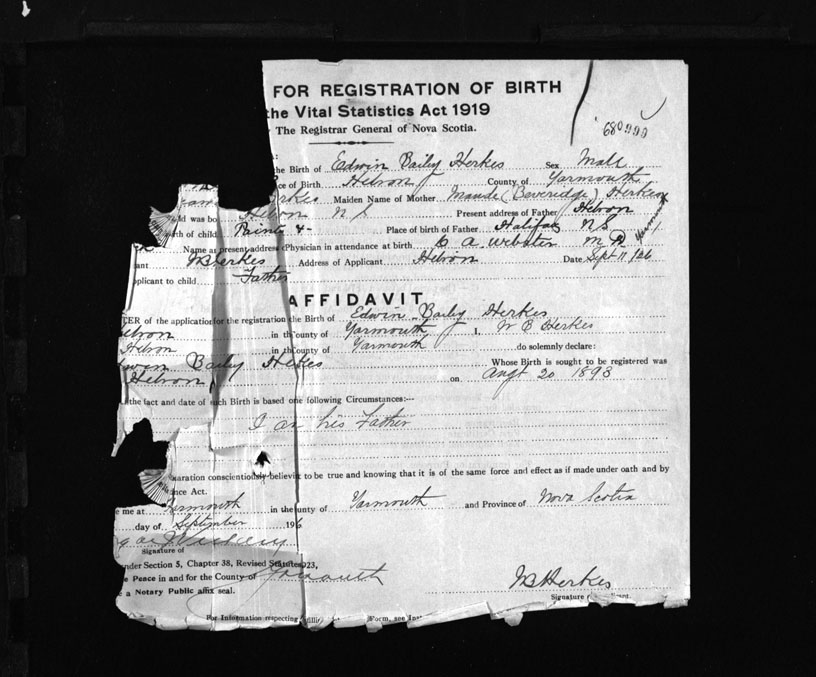 FOR REGISTRATION OF BIRTH
the Vital Statistics Act 1919
The Registrar General of Nova Scotia.
680990
the Birth of Edwin Baily Herkes Sex Male
ce of Birth Hebron County of Yarmouth
erkes Maiden Name of Mother Maude (Beveridge) Herkes
ild was bo Hebron N S Present address of Father Hebron
rth of child Place of birth of Father Halifax N S Yarmouth
Name as present address (Physician in attendance at birth C A Webster M D
ant Herkes Address of Applicant Hebron Date Sept 11/26
pplicant to child Father
AFFIDAVIT
TER of the application for the registration the Birth of Edwin Baily Herkes
ebron in the County of Yarmouth I, W B Herkes
Hebron in th County of Yarmouth do solemnly declare:
dwin Baily Herkes Whose Birth is sought to be registered was
Hebron on Augt 20 1893
the fact and date of such Birth is based one following Circumstances:--
I am his Father
aration conscientiously believing to be true and knowing that it is of the same force and effect as if made under oath and by
nce Act.
e me at Yarmouth in the unty of Yarmouth and Province of Nova Scotia
day of September 196
Signature of
nder Section 5, Chapter 38, Revised Statutes 923,
e Peace in and for the County of Yarmouth
e a Notary Public affix seal.
WB Herkes
Signature
For Information respecting filli Form, see Ins